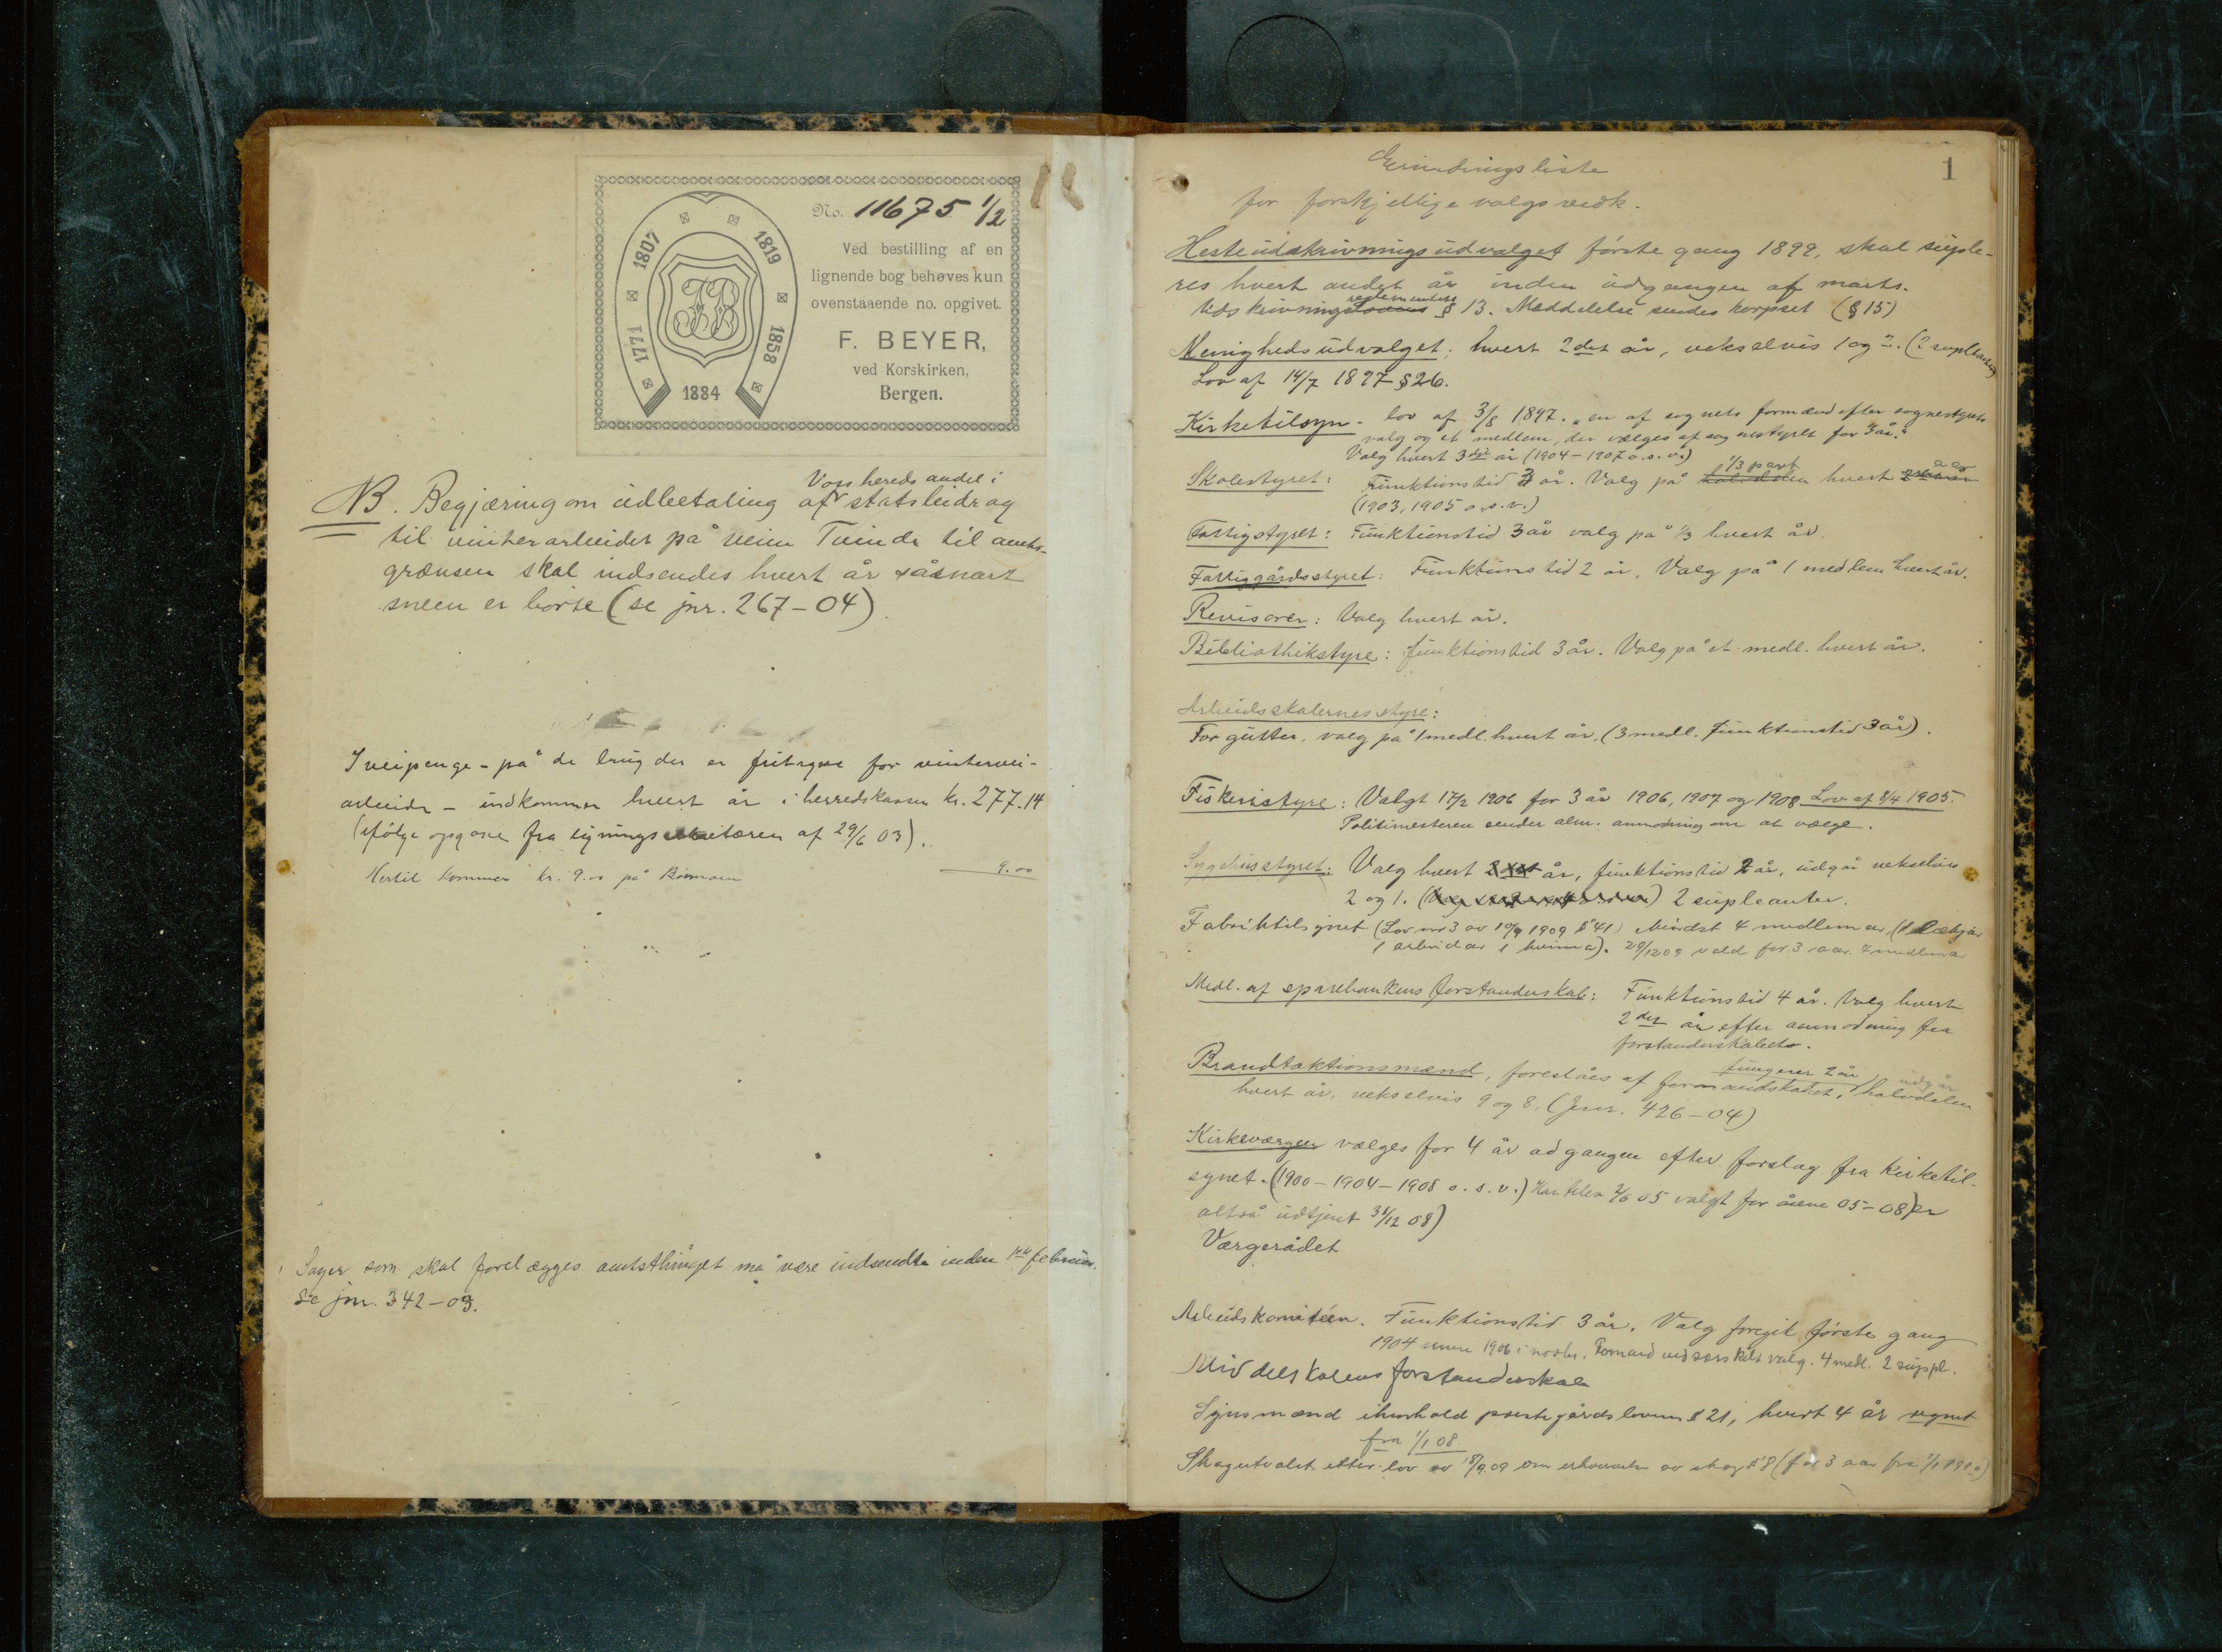 No. 11675 1/2
Ved bestilling af en
lignende bog behøves kun
ovenstaaende no. opgivet.
F. BEYER,
ved Korskirken,
Bergen.
1771
1807
1819
1858
1884
FB
Voss hereds andel i
NB. Begjæring om udbetaling af statsbidrag
til vinterarbeidet på veien Tvinde til amts-
grænsen skal indsendes hvert år såsnart
sneen er borte (se jnr. 267-04).
I veipenge - på de brug der er fritagne for vintervei-
arbeide - indkommer hvert år i herredskassen kr. 277.14
(ifølge opgave fra ligningssekretæren af 29/6 03).
Hertil kommer kr. 9.00 på 9.00
Sager som skal forelægges amtsthinget må være indsendte inden 1ste februar.
Se jnr. 342-03.
1
Erindringsliste
for forskjellige valgs vedk.
Hesteudskrivningsudvalget første gang 1899, skal suple-
res hvert andet år inden udgangen af marts.
Udskrivningslovens reglementets § 13. Meddelelse sendes korpset (§ 15)
Menighedsudvalget: hvert 2det år, vekselvis 1 og 2. (2 supleanter)
Lov af 14/7 1897 § 26.
Kirketilsyn. lov af 3/8 1897. "en af sognets formænd efter sognestyrets
valg og et medlem, der vælges af sognestyret for 3 år."
Valg hvert 3die år (1904-1907 o.s.v.)
Skolestyret: Funktionstid 3 år. Valg på halvdelen 1/3 part hvert
(1903, 1905 o.s.v.)
Fattigstyret: Funktionstid 3 år valg på 1/3 hvert år.
Fattiggårdsstyret: Funktionstid 2 år. Valg på 1 medlem hvert år.
Revisorer: Valg hvert år.
Bibliothikstyre: funktionstid 3 år. Valg på et medl. hvert år.
Arbeidsskolernes styre:
For gutter, valg på 1 medl. hvert år. (3 medl. Funktionstid 3 år).
Fiskeristyre: Valgt 17/2 1906 for 3 år 1906, 1907 og 1908 Lov af 8/4 1905.
Politimesteren sender alm. anmodning om at vælge.
Sygehusstyret: Valg hvert år, funktionstid 2 år, udgår vekselvis
2 og 1. 2 supleanter.
Fabriktilsynet (Lov nr 3 av 10/9 1909 § 41) Mindst 4 medlemar (1 lækjar
1 arbeidar 1 kvinna). 29/12 09 vald for 3 aar. 4 medlemar
Medl. af sparebankens forstanderskab: Funktionstid 4 år. Valg hvert
2det år efter anmodning fra
forstanderskabet.
fungerer 2 år udgår
Brandtakstionsmænd, foreslåes af formandskabet, halvdelen
hvert år, vekselvis 9 og 8. (Jnr. 426-04)
Kirkeværgen vælges for 4 år ad gangen efter forslag fra kirketil-
synet. (1900-1904-1908 o.s.v.) 2/6 05 valgt for årene 05-08)
altså udtjent 31/12 08)
Værgerådet
Arbeidskomitéen. Funktionstid 3 år. Valg foregik første gang
1904 1906 i novbr. Formand ved særskilt valg. 4 medl. 2 suppl.
Middelskolens forstanderskab
Synsmænd i henhold prestegårdsloven § 21, hvert 4 år regnet
fra 1/1 08.
Skogutvalet etter lov av 18/9 09 om erhvervelse av skog § 8 (for 3 aar fra 1/1 1910)